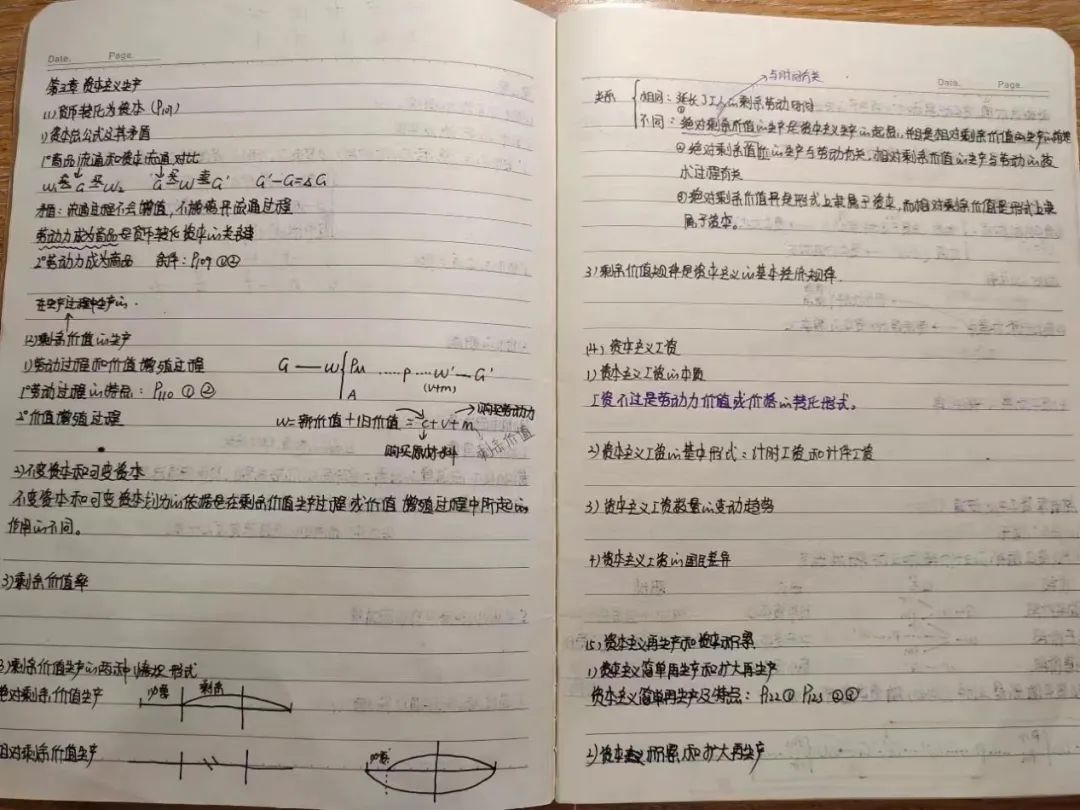 Date.    Page.
第三章 资本主义生产
(1) 货币转化为资本 (P107)
1) 资本总公式及其矛盾
1°商品流通和资本流通对比
W₁ 卖 G 买 W₂    G 买 W 卖 G'    G'-G=ΔG
矛盾：流通过程不会增值，不能离开流通过程
劳动力成为商品是货币转化资本的关键
2°劳动力成为商品    条件：P109 ①②
在生产过程中生产的.
(2) 剩余价值的生产
1) 劳动过程和价值增殖过程
G — W { Pm A ...... P .... W' — G'
(v+m)
1°劳动过程的特点：P110 ① ②
2°价值增殖过程
W=新价值+旧价值=c+v+m
购买劳动力
购买原材料
剩余价值
2) 不变资本和可变资本
不变资本和可变资本划分的依据是在剩余价值生产过程或价值增殖过程中所起的
作用的不同。
3) 剩余价值率
3) 剩余价值生产的两种 形式
绝对剩余价值生产
必要    剩余
相对剩余价值生产
必要
Date.    Page.
与时间有关
关系
相同：延长了工人的剩余劳动时间
不同：①绝对剩余价值的生产是资本主义生产的起点，也是相对剩余价值的生产的
②绝对剩余价值的生产与劳动有关，相对剩余价值的生产与劳动的技
术过程有关
③绝对剩余价值 是形式上隶属于资本，而相对剩余价值是形式上隶
属于资本。
3) 剩余价值规律是资本主义的基本经济规律.
(4) 资本主义工资
1) 资本主义工资的本质
工资不过是劳动力价值或价格的转化形式。
2) 资本主义工资的基本形式：计时工资和计件工资
3) 资本主义工资数量的变动趋势
4) 资本主义工资的国民差异
(5) 资本主义再生产和资本积累
1) 资本主义简单再生产和扩大再生产
资本主义简单再生产及特点：P122① P123 ②③
2) 资本主义积累和扩大再生产